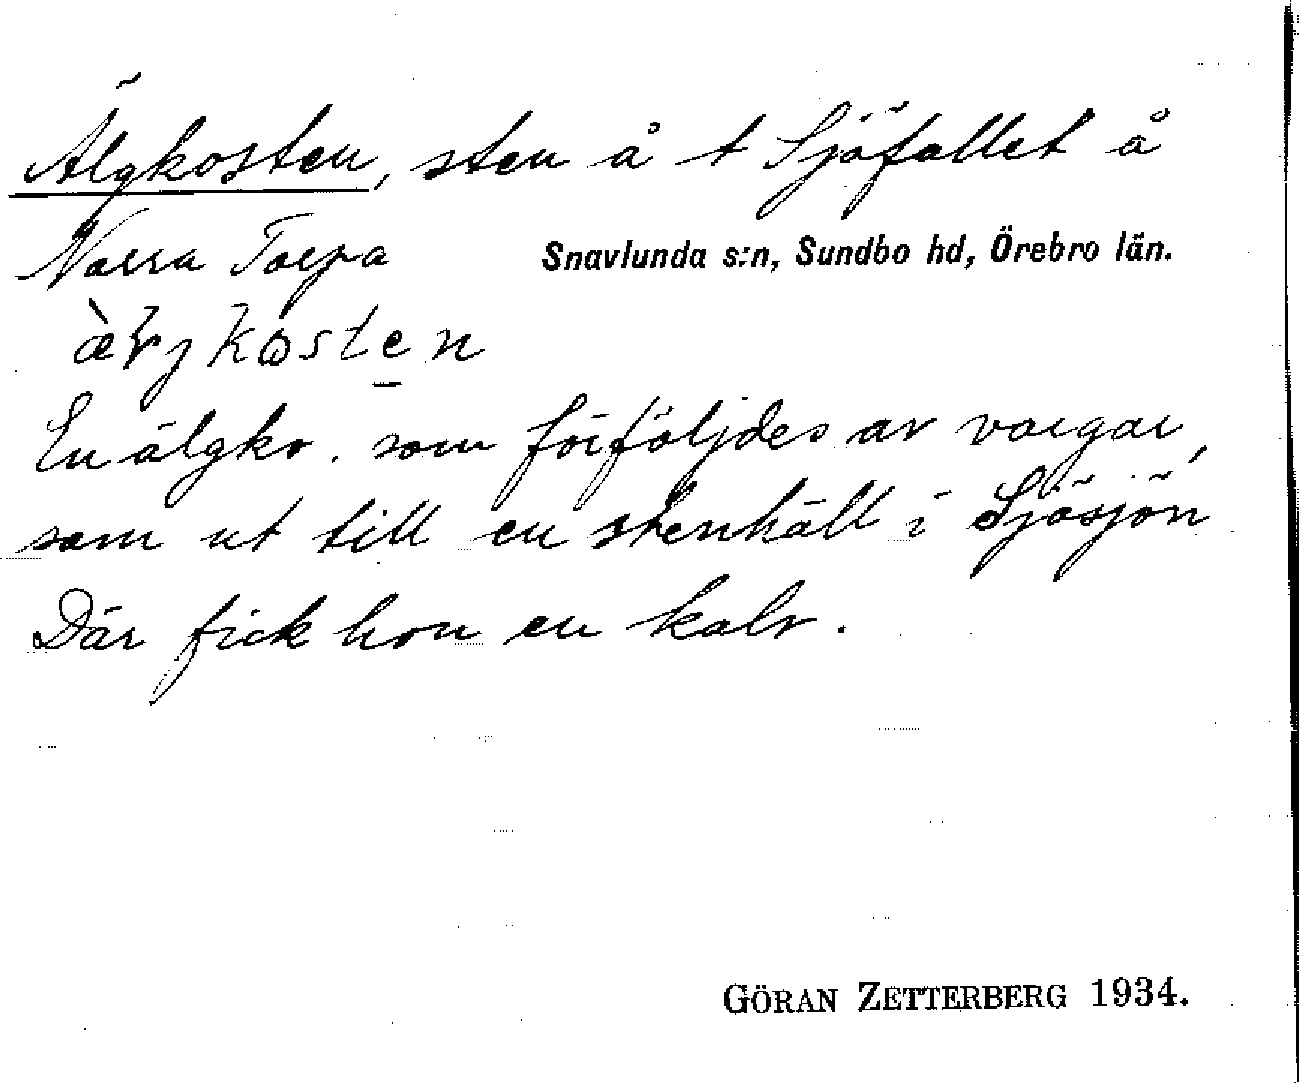 Älgkosten, sten å t Sjöfallet å
Norra Torpa Snavlunda s:n, Sundbo hd, Örebro län.
En älgko, som förföljdes av vargar,
sam ut till en stenhäll i Sjösjön
Där fick hon en kalv.
GÖRAN ZETTERBERG 1934.